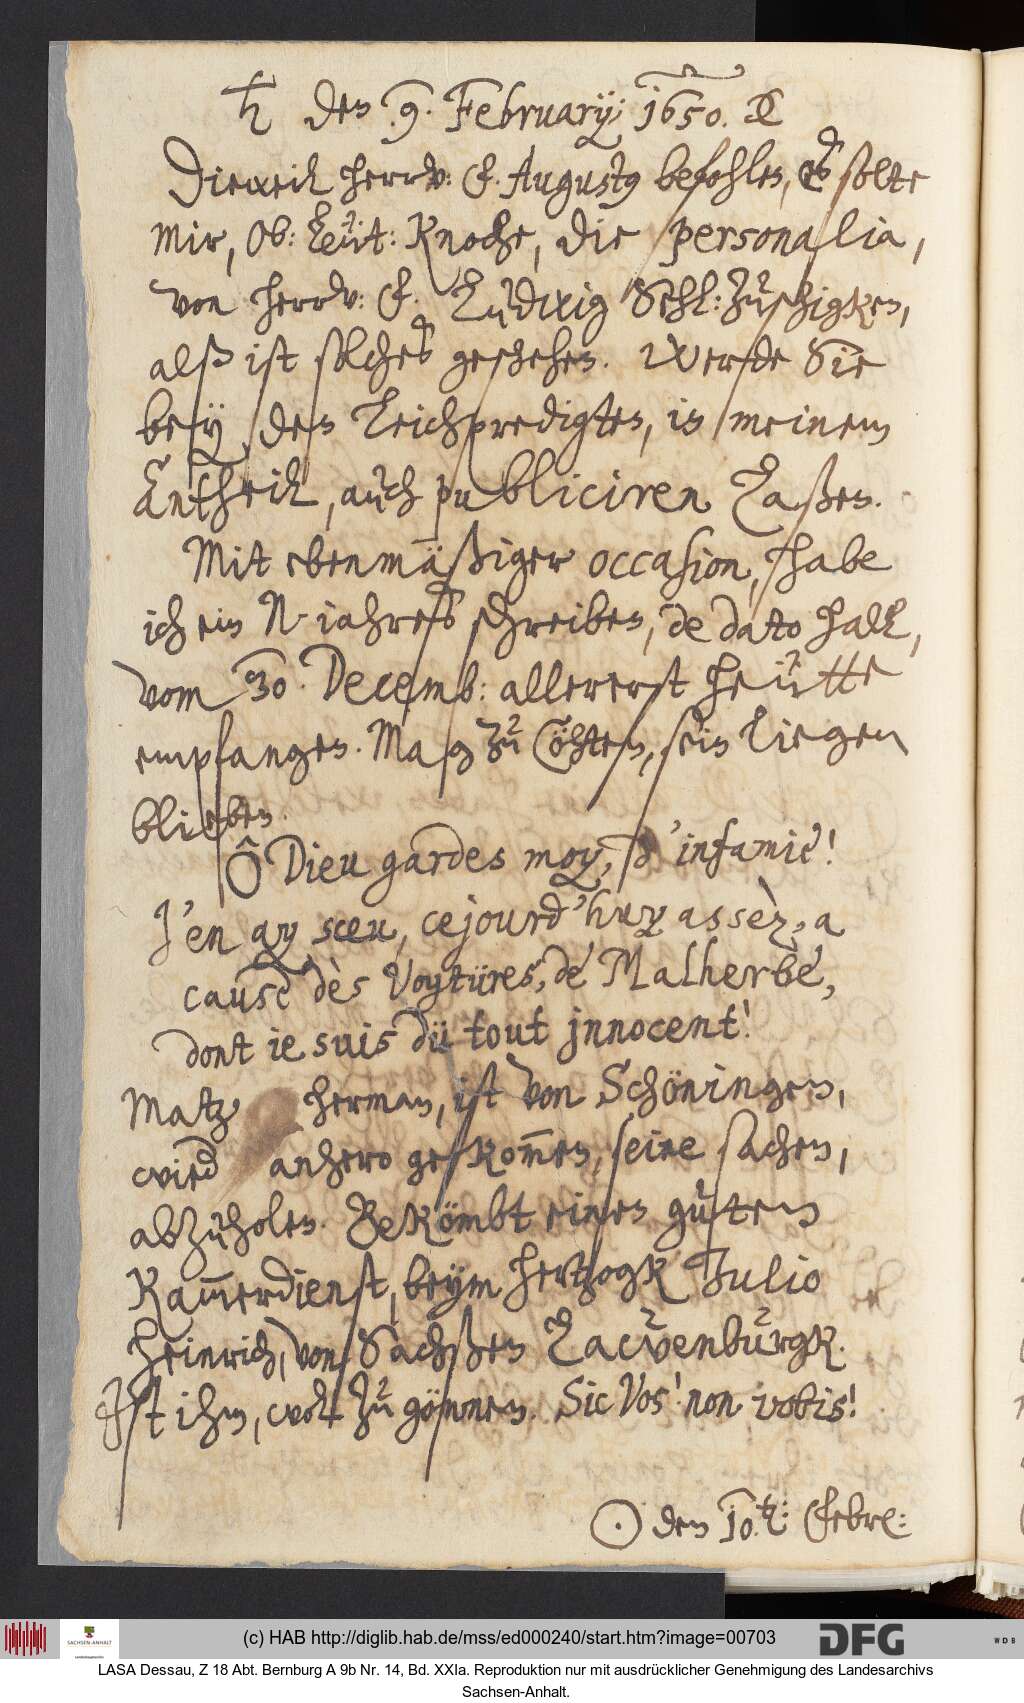 ♄ den .9. February: 1650. ☾
Dieweil herrv: F. Augustg befohlen, es solte
mir, Ob: Leüt: Knoche, die personalia,
von herrv: F. Ludwig Sehl: zuschigken,
alß ist solches geschehen. Werde Sie
bey, den Leichpredigten, in meinem
Antheil, auch publiciren Laßen.
Mit ebenmäßiger occasion, habe
ich ein N-iahres schreiben, de dato hall,
vom 30. Decemb: allererst heütte
empfangen. Mag zu Cöhten, sein Liegen
blieben.
Ô Dieu gardes moy, d'infamie!
J'en ay sceu, cejourd'huy assèz, a
cause dès Voytüres, de Malherbe,
dont ie suis dü tout jnnocent!
Matz herman, ist von Schöningen,
wied anhero gekom̅en, seine sachen,
abzuholen. Bekömbt einen guten
Kam̅erdienst, beym hertzogk Julio
Heinrich, von Sachßen Lawenburgk.
Ist ihm, wol zu gönnen. Sic Vos! non vobis!
☉ den 10.t: Febr:
(c) HAB http://diglib.hab.de/mss/ed000240/start.htm?image=00703
SACHSEN-ANHALT
DFG
WDB
LASA Dessau, Z 18 Abt. Bernburg A 9b Nr. 14, Bd. XXIa. Reproduktion nur mit ausdrücklicher Genehmigung des Landesarchivs
Sachsen-Anhalt.